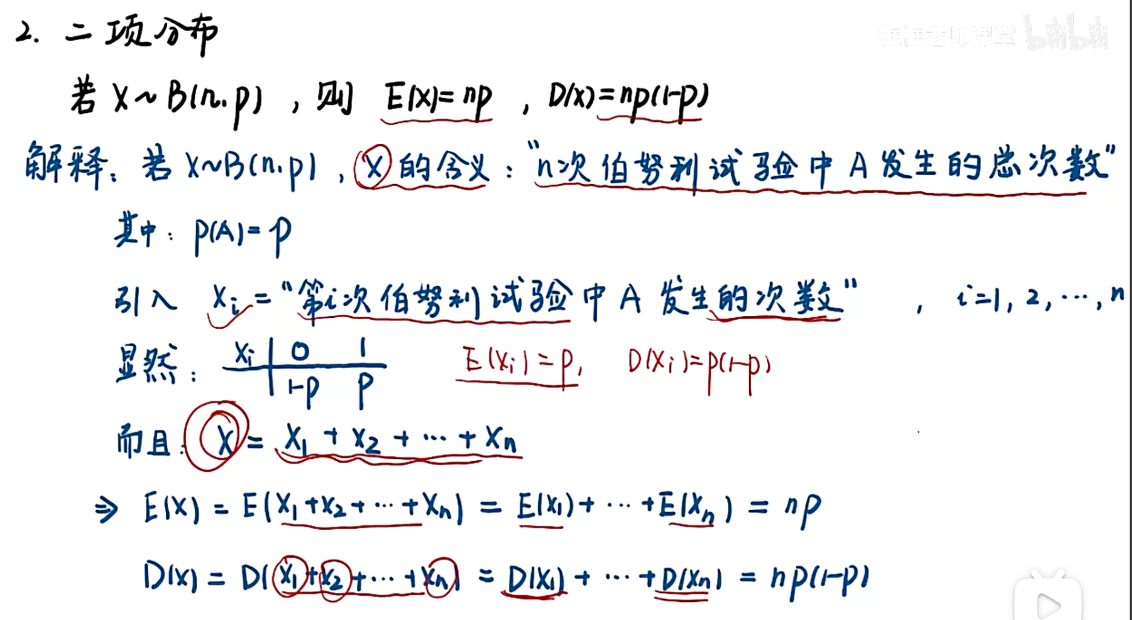 2. 二项分布
若 X~B(n.p) , 则 E(X)=np , D(X)=np(1-p)
解释: 若 X~B(n.p) , X 的含义: "n次伯努利试验中 A 发生的总次数"
其中: P(A)=p
引入 Xi = "第i次伯努利试验中 A 发生的次数" , i=1, 2, ···, n
显然: Xi 0 1 E(Xi)=p, D(Xi)=p(1-p)
1-p p
而且: X = X1 + X2 + ··· + Xn
⇒ E(X) = E(X1+X2+···+Xn) = E(X1)+···+E(Xn) = np
D(X) = D(X1+X2+···+Xn) = D(X1)+···+D(Xn) = np(1-p)
bilibili